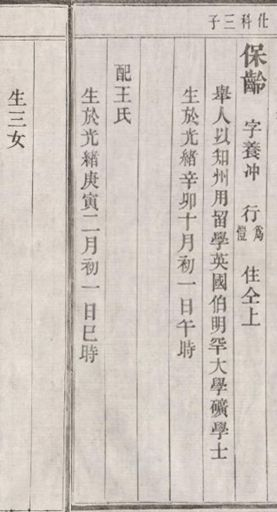 化科三子
保齡 字養冲 行爲愷 住仝上
舉人以知州用留學英國伯明罕大學礦學士
生於光緒辛卯十月初一日午時
配王氏
生於光緒庚寅二月初一日巳時
生三女